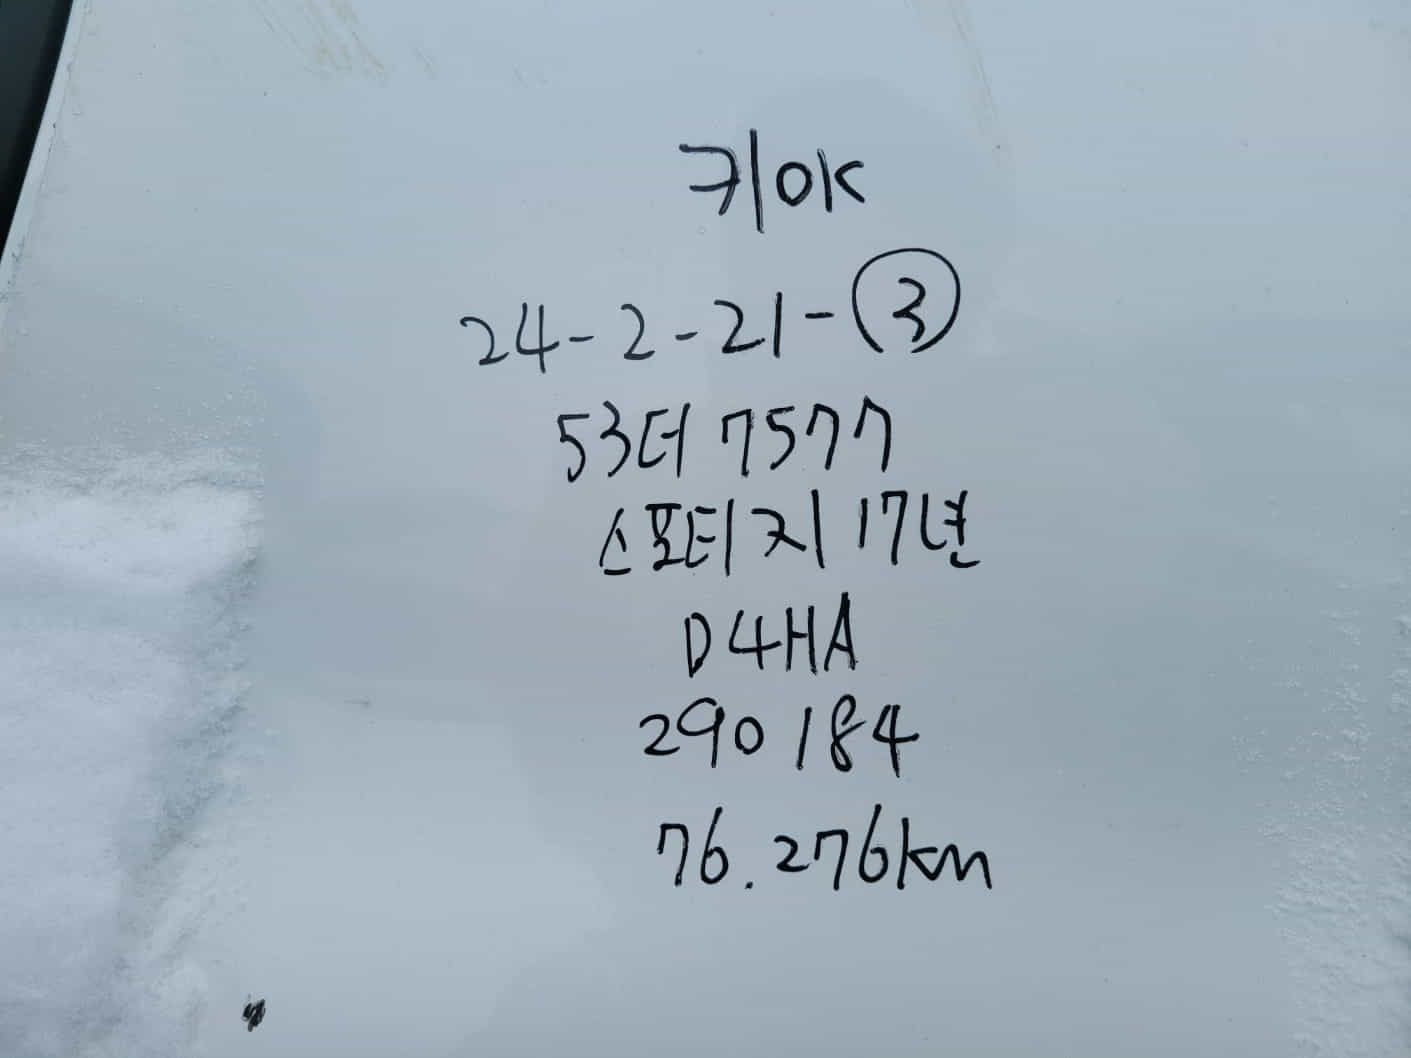 키OK
24-2-21-③
53더 7577
스포티지 17년
D4HA
290184
76.276km